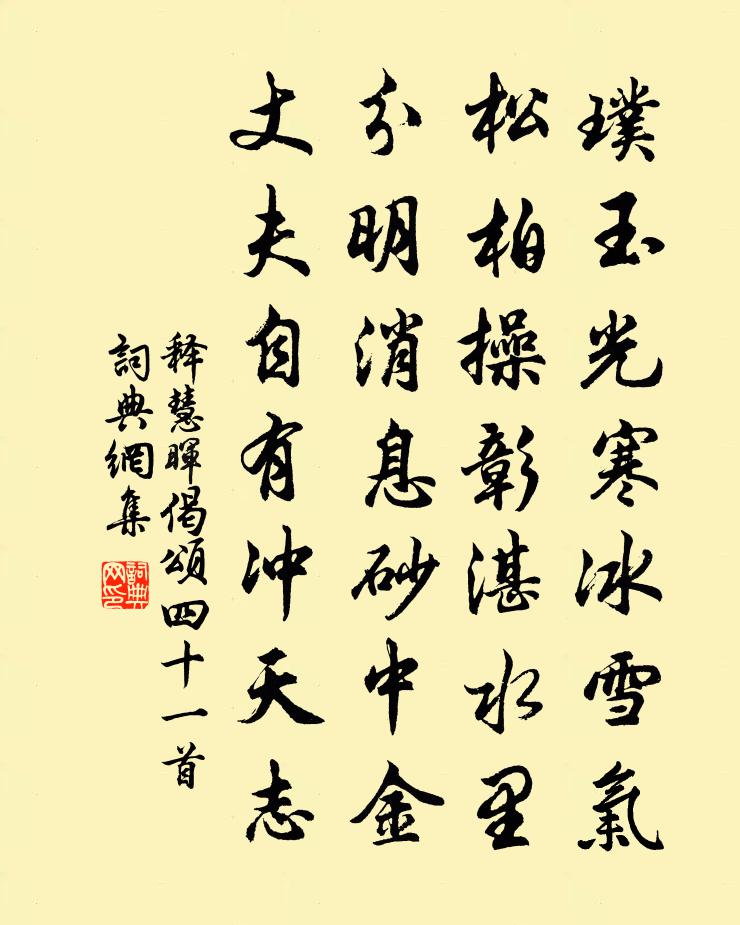 璞玉光寒冰雪氣
松柏操彰湛水里
分明消息砂中金
丈夫自有冲天志
释慧暉偈頌四十一首
詞典網集
詞典网印